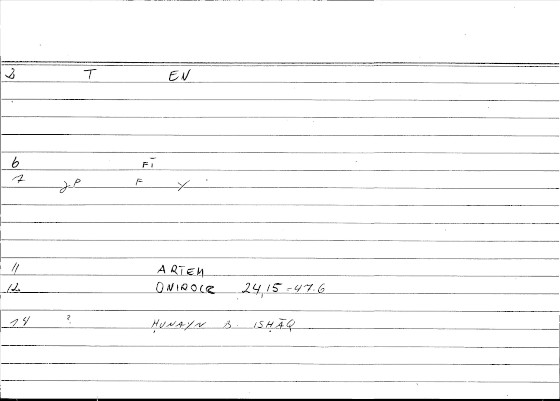 3 T EN
6 FĪ
7 gP F y
11 ARTEM
12 ONIROCR 24,15-47.6
14 ? ḤUNAYN B. ISḤĀQ